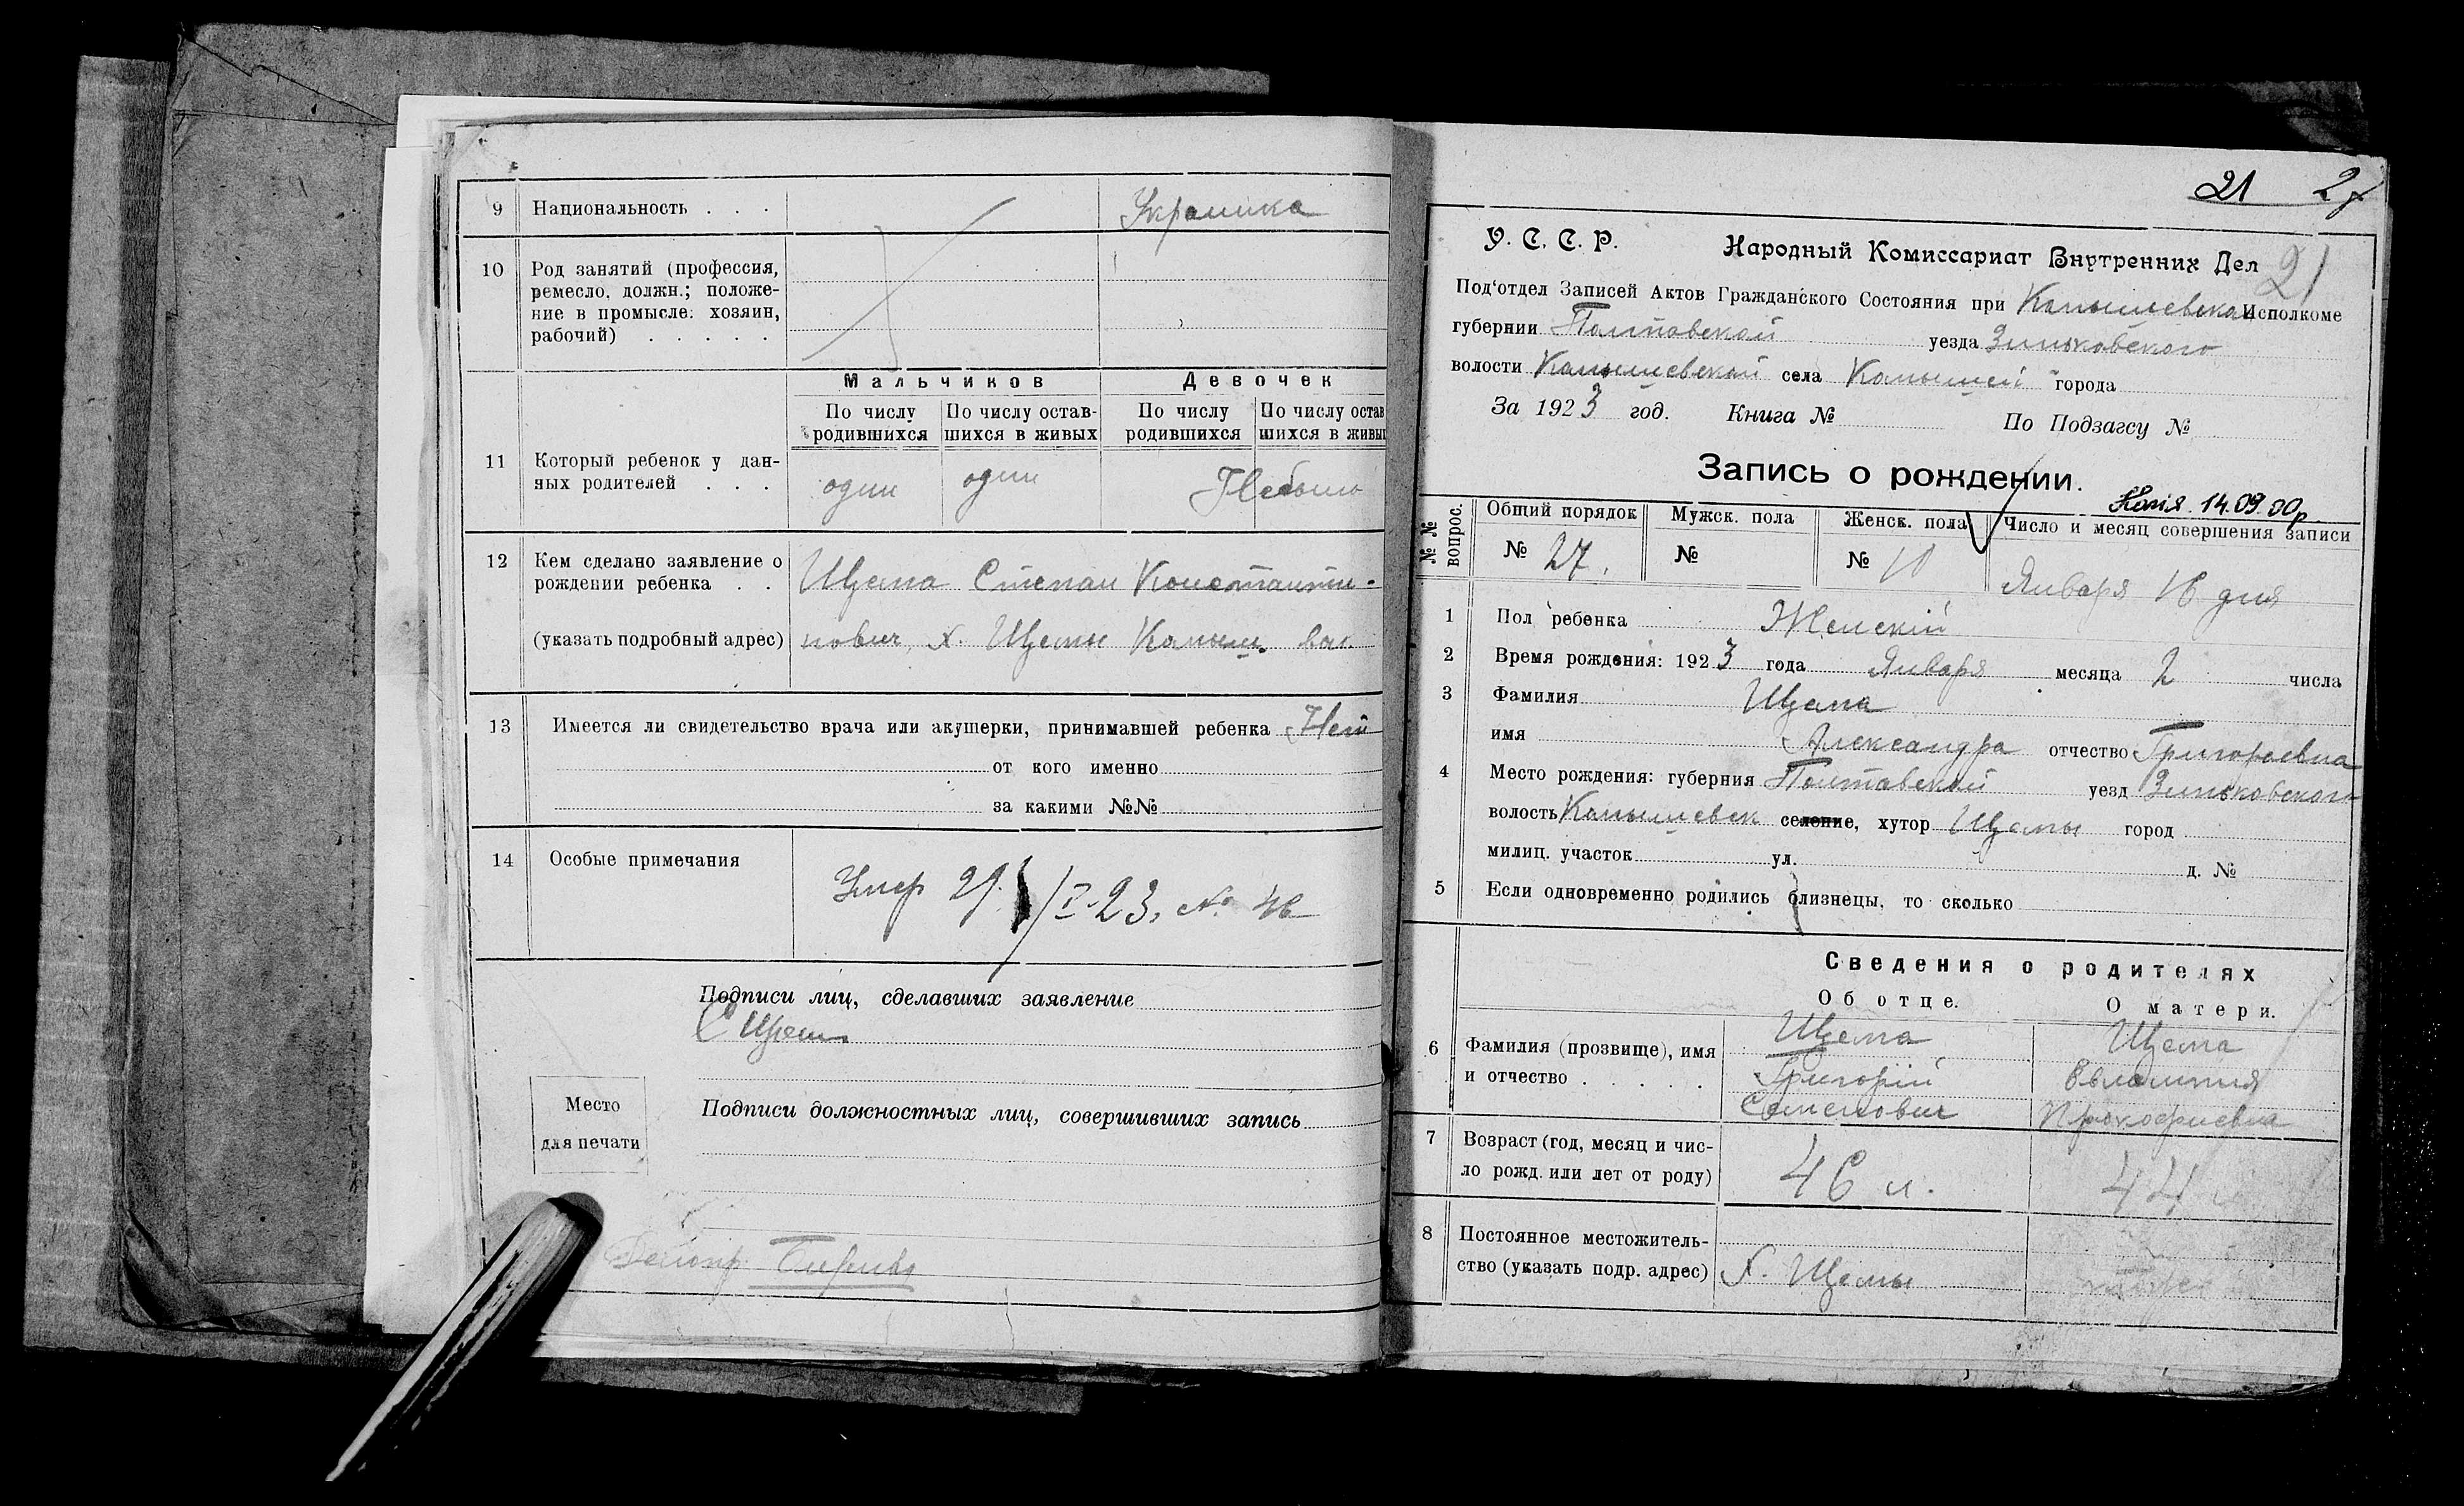 9 Национальность . . . Украинка
10 Род занятий (профессия,
ремесло, должн.; положе-
ние в промысле: хозяин,
рабочий) . . . . .
Мальчиков Девочек
По числу родившихся По числу остав-шихся в живых По числу родившихся По числу остав шихся в живы
11 Который ребенок у дан-
ных родителей . . . один один Небыло
12 Кем сделано заявление о
рождении ребенка . . Щема Степан Константи-
(указать подробный адрес) нович, х. Щемы Камыш. вол.
13 Имеется ли свидетельство врача или акушерки, принимавшей ребенка Нет
от кого именно
за какими №№
14 Особые примечания
Умер 29/I-23, № 46
Подписи лиц, сделавших заявление
С Щема
Место
для печати
Подписи должностных лиц, совершивших запись
21 27
У. С. С. Р. Народный Комиссариат Внутренних Дел 21
Под‘отдел Записей Актов Гражданского Состояния при Камышевском Исполкоме
губернии Полтавской уезда Зиньковского
волости Камышевской села Камышей города
За 1923 год. Книга № По Подзагсу №
Запись о рождении.
Копія 14.09.00р.
№№ вопрос. Общий порядок Мужск. пола Женск. пола Число и месяц совершения записи
№ 27. № № 10 Января 16 дня
1 Пол ребенка Женскій
2 Время рождения: 1923 года Января месяца 2 числа
3 Фамилия Щема
имя Александра отчество Григорьевна
4 Место рождения: губерния Полтавской уезд Зиньковского
волость Камышевск селение, хутор Щемы город
милиц. участок ул. д. №
5 Если одновременно родились близнецы, то сколько
Сведения о родителях
Об отце. О матери.
6 Фамилия (прозвище), имя
и отчество . . . . . Щема Григорій Семенович Щема Евлампия Прокофиевна
7 Возраст (год, месяц и чис-
ло рожд. или лет от роду) 46 л. 44
8 Постоянное местожитель-
ство (указать подр. адрес) х. Щемы